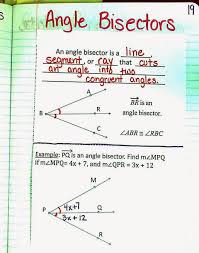 19
Angle Bisectors
An angle bisector is a line
segment, or ray that cuts
an angle into two
congruent angles.
A
B
R
C
BR is an
angle bisector.
∠ABR ≅ ∠RBC
Example: PQ is an angle bisector. Find m∠MPQ
If m∠MPQ= 4x + 7, and m∠QPR = 3x + 12
M
4x+7
P
Q
3x+12
R